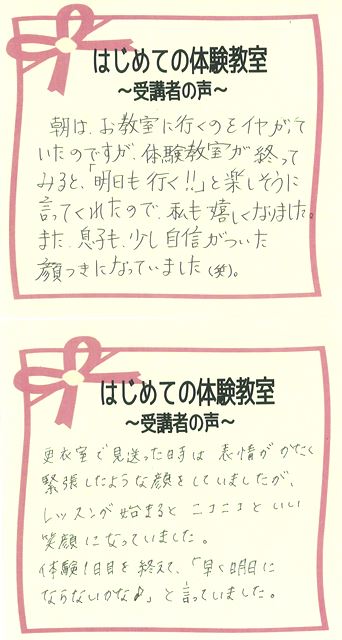 はじめての体験教室
～受講者の声～
朝は、お教室に行くのをイヤがって
いたのですが、体験教室が終って
みると、「明日も行く!!」と楽しそうに
言ってくれたので、私も嬉しくなりました。
また、息子も、少し自信がついた
顔つきになっていました(笑)。
はじめての体験教室
～受講者の声～
更衣室で見送った時は 表情が かたく
緊張したような顔をしていましたが、
レッスンが始まると ニコニコと いい
笑顔になっていました。
体験1日目を終えて、「早く明日に
ならないかな♪」と言っていました。